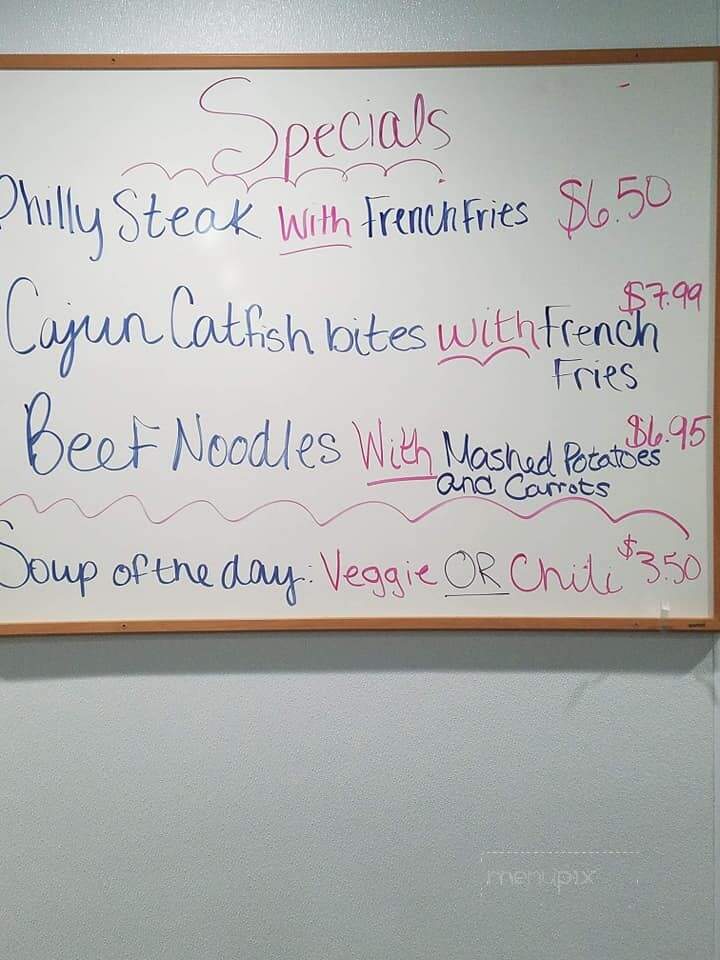 Specials
Philly Steak With French Fries $6.50
$7.99
Cajun Catfish bites with French
Fries
$6.95
Beef Noodles With Mashed Potatoes
and Carrots
Soup of the day: Veggie OR Chili $3.50
menupix